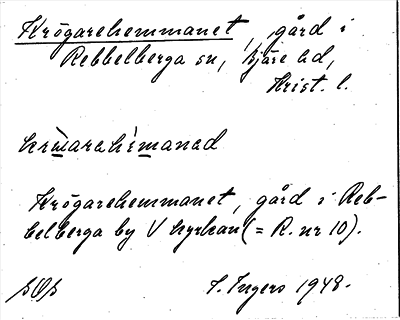 Krögarehemmanet, gård i
Rebbelberga sn, Bjäre hd,
Krist. l.
Krögarehemmanet, gård i Reb-
belberga by V kyrkan (= R. nr 10).
I. Ingers 1948.